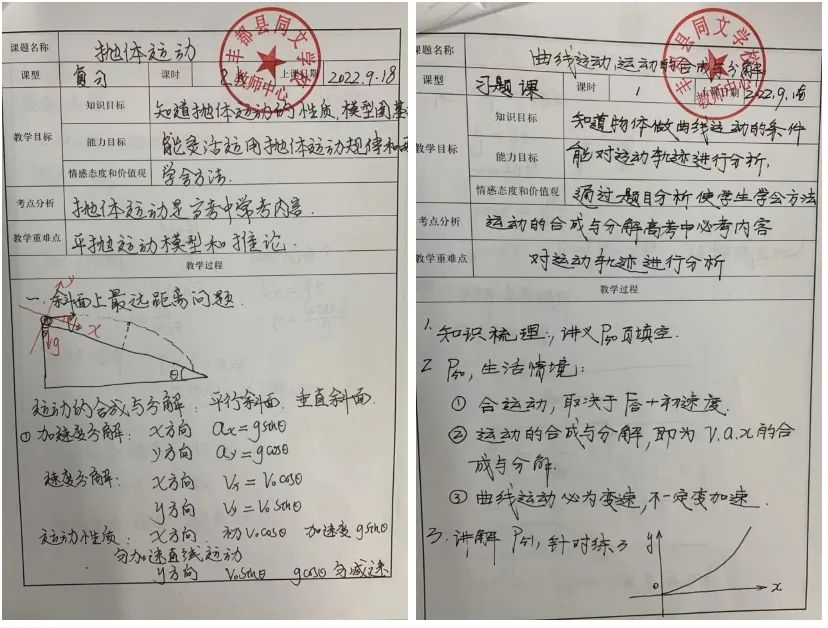 课题名称 抛体运动
丰都县同文学校
教师中心
课型 复习 课时 上课日期 2022.9.18
教学目标
知识目标 知道抛体运动的性质,模型图基
能力目标 能灵活运用抛体运动规律和
情感态度和价值观 学会方法.
考点分析 抛体运动是高考中常考内容.
教学重难点 平抛运动模型和推论.
教学过程
一.斜面上最远距离问题.
x
g
θ
运动的合成与分解: 平行斜面. 垂直斜面.
①加速度分解: x方向 ax=gsinθ
y方向 ay=gcosθ
速度分解: x方向 Vx=V₀cosθ
y方向 Vy=V₀sinθ
运动性质: x方向. 初V₀cosθ 加速度gsinθ
匀加速直线运动
y方向 V₀sinθ gcosθ 匀减速
课题名称 曲线运动,运动的合成与分解
丰都县同文学校
教师中心
课型 习题课 课时 1 上课日期 2022.9.18
教学目标
知识目标 知道物体做曲线运动的条件
能力目标 能对运动轨迹进行分析.
情感态度和价值观 通过题目分析使学生学会方法
考点分析 运动的合成与分解高考中必考内容
教学重难点 对运动轨迹进行分析
教学过程
1.知识梳理:,讲义P50页填空.
2 P50,生活情境:
① 合运动,取决于F合+初速度.
② 运动的合成与分解,即为V.a.x的合
成与分解.
③ 曲线运动必为变速,不一定变加速.
3.讲解P51,针对练3
y
0
x